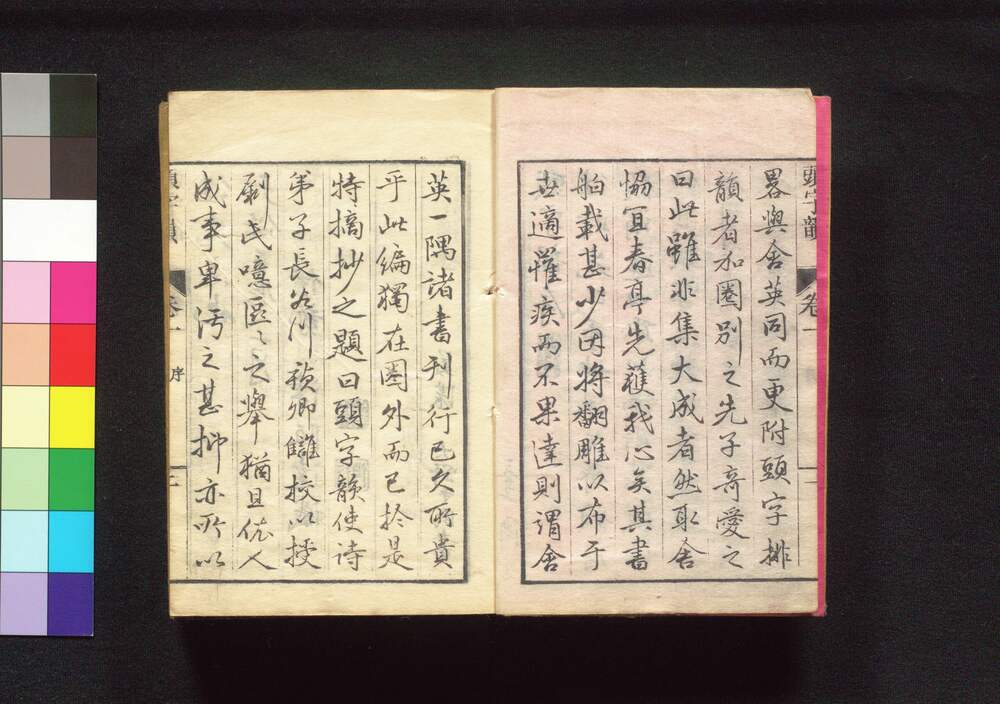 畧與含英同而更附頭字排
韻者加圏別之先子奇愛之
曰此雖非集大成者然取舎
恊宜春亭先獲我心矣其書
舶載甚少因将翻雕以布于
世適罹疾而不果達則謂含
英一隅諸書刊行已久所貴
乎此編獨在圏外而已於是
特摘抄之題曰頭字韻使詩
弟子長谷川禎卿讎校以授
剞氏噫區〻之舉猶且依人
成事卑汚之甚抑亦所以
頭字韻
卷一
一
頭字韻
卷一
序
二